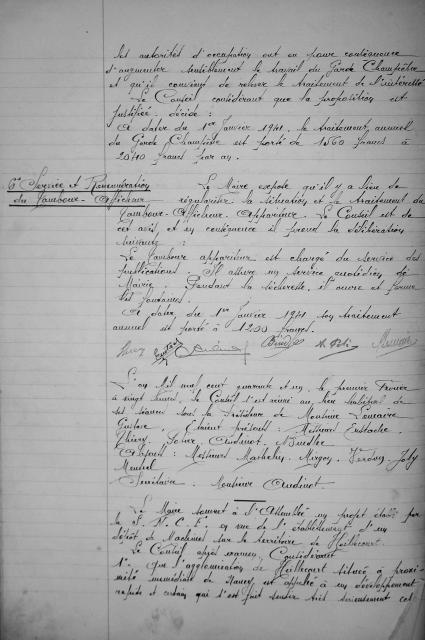 les autorités d'occupation ont eu pour conséquence
d'augmenter sensiblement le travail du Garde Champêtre
et qu'il convient de relever le traitement de l'intéressé
Le Conseil considérant que la proposition est
justifiée décide :
A dater du 1er Janvier 1941, le traitement annuel
du Garde Champêtre est porté de 1560 francs à
2040 francs par an.
6° Service et Rémunération
du Tambour-Afficheur
Le Maire expose qu'il y a lieu de
régulariser la situation et le traitement du
Tambour-Afficheur Appariteur. Le Conseil est de
cet avis, et en conséquence il prend la délibération
suivante :
Le Tambour appariteur est chargé du service des
publications. Il assure un service quotidien de
Mairie. Pendant la sécheresse, il ouvre et ferme
les fontaines.
A dater du 1er Janvier 1941 son traitement
annuel est porté à 1200 francs.
L'an Mil neuf cent quarante et un, le premier Février
à vingt heures, le Conseil s'est réuni au lieu habituel de
ses séances sous la Présidence de Monsieur Lemaire
Gustave. Etaient présents : Messieurs Eustache
Thiéry, Audinot,
Absents : Messieurs
Secrétaire. Monsieur Audinot.
Le Maire soumet à l'Assemblée un projet établi par
la S.N.C.F. en vue de l'établissement d'un
dépôt de Machines sur le territoire de Heillecourt.
Le Conseil après examen, Considérant
1° Que l'agglomération de Heillecourt située à proxi-
mité immédiate de Nancy est appelée à un développement
rapide et certain qui s'est fait sentir très sérieusement cet